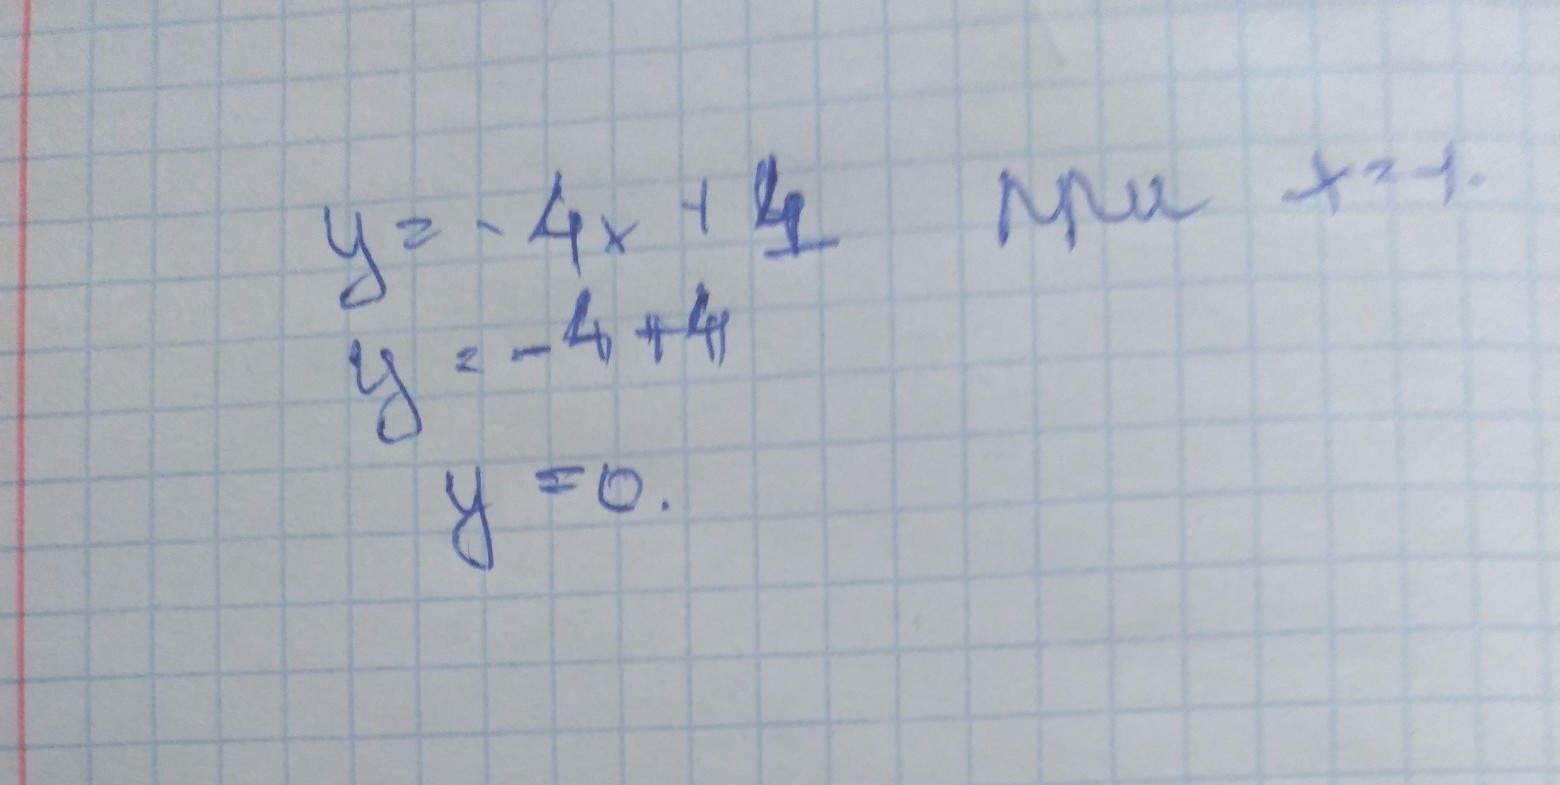 y = - 4x + 4 при x = -1.
y = - 4 + 4
y = 0.